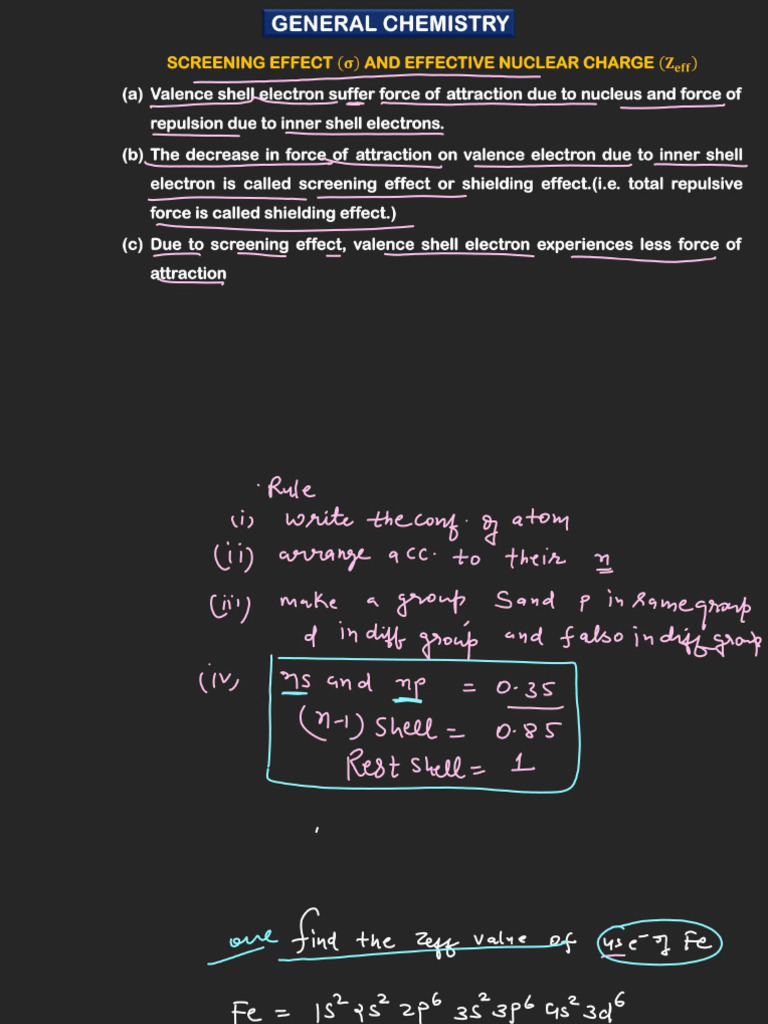 GENERAL CHEMISTRY
SCREENING EFFECT (σ) AND EFFECTIVE NUCLEAR CHARGE (Zeff)
(a) Valence shell electron suffer force of attraction due to nucleus and force of
repulsion due to inner shell electrons.
(b) The decrease in force of attraction on valence electron due to inner shell
electron is called screening effect or shielding effect.(i.e. total repulsive
force is called shielding effect.)
(c) Due to screening effect, valence shell electron experiences less force of
attraction
Rule
(i) write the conf. of atom
(ii) arrange acc. to their n
(iii) make a group S and p in same group
d in diff group and f also in diff group
(iv) ns and np = 0.35
(n-1) Shell = 0.85
Rest shell = 1
find the Zeff value of 4s e⁻ of Fe
Fe = 1s² 2s² 2p⁶ 3s² 3p⁶ 4s² 3d⁶